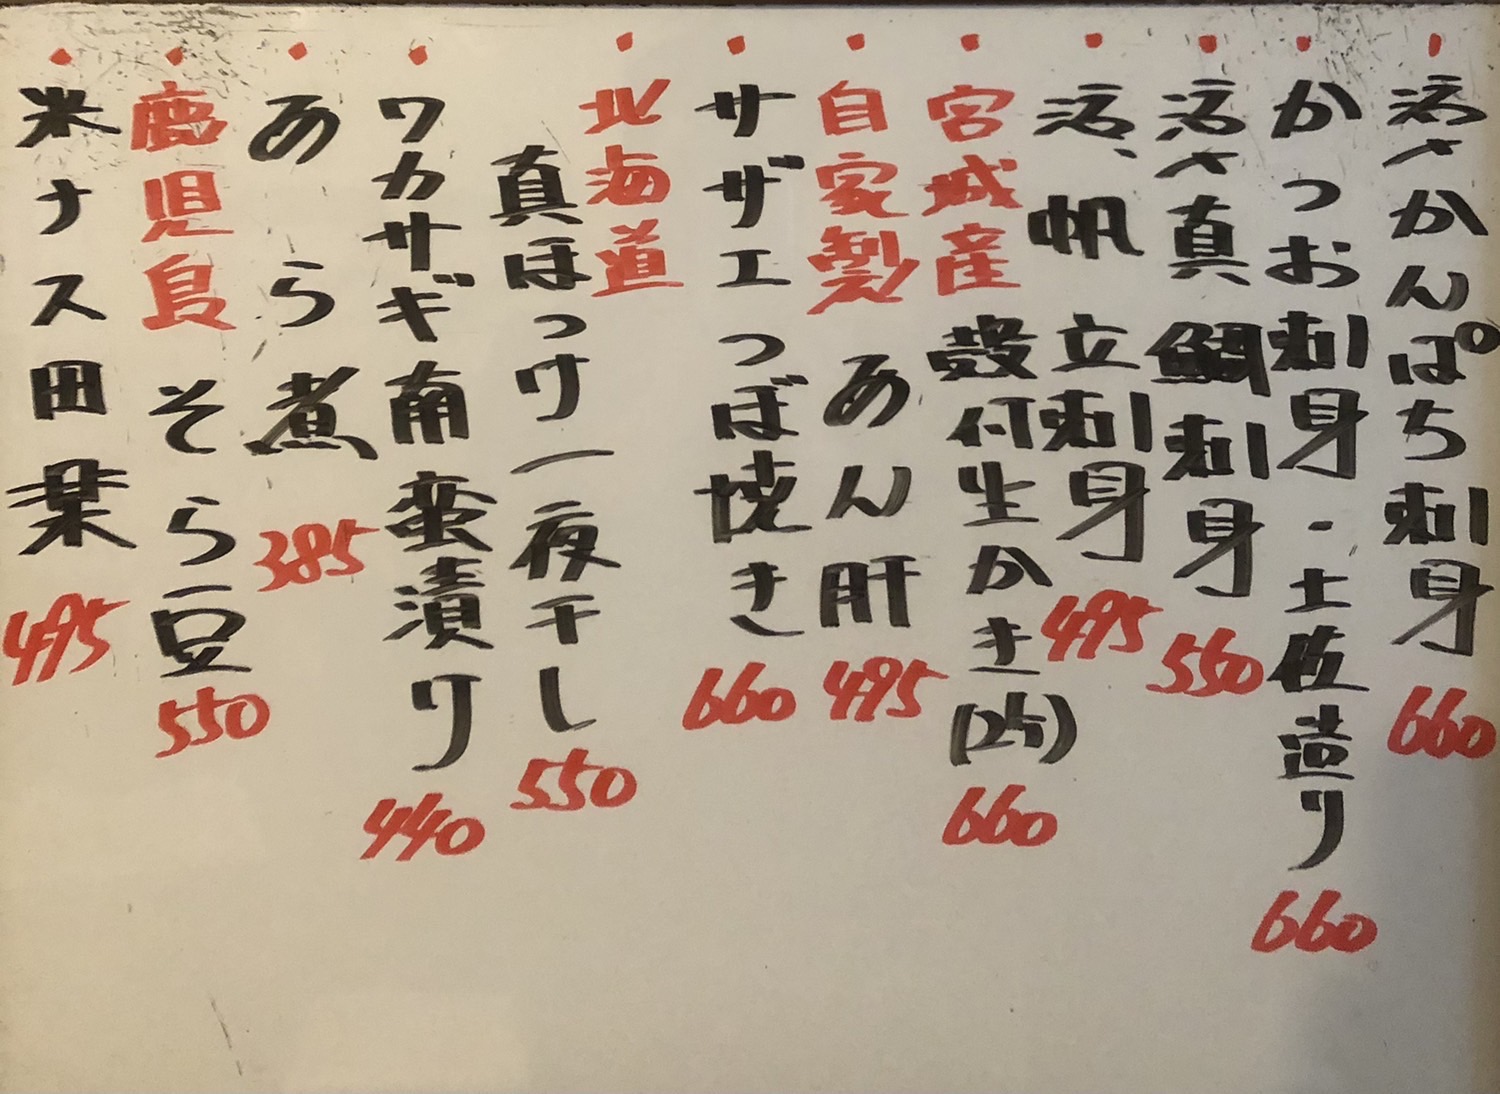 ・活〆かんぱち刺身 660
・かつお刺身・土佐造り 660
・活〆真鯛刺身 550
・活、帆立刺身 495
・宮城産 殻付生かき(2ケ) 660
・自家製 あん肝 495
・サザエつぼ焼き 660
・北海道 真ほっけ一夜干し 550
・ワカサギ南蛮漬り 440
・あら煮 385
・鹿児島 そら豆 550
・米ナス田楽 495